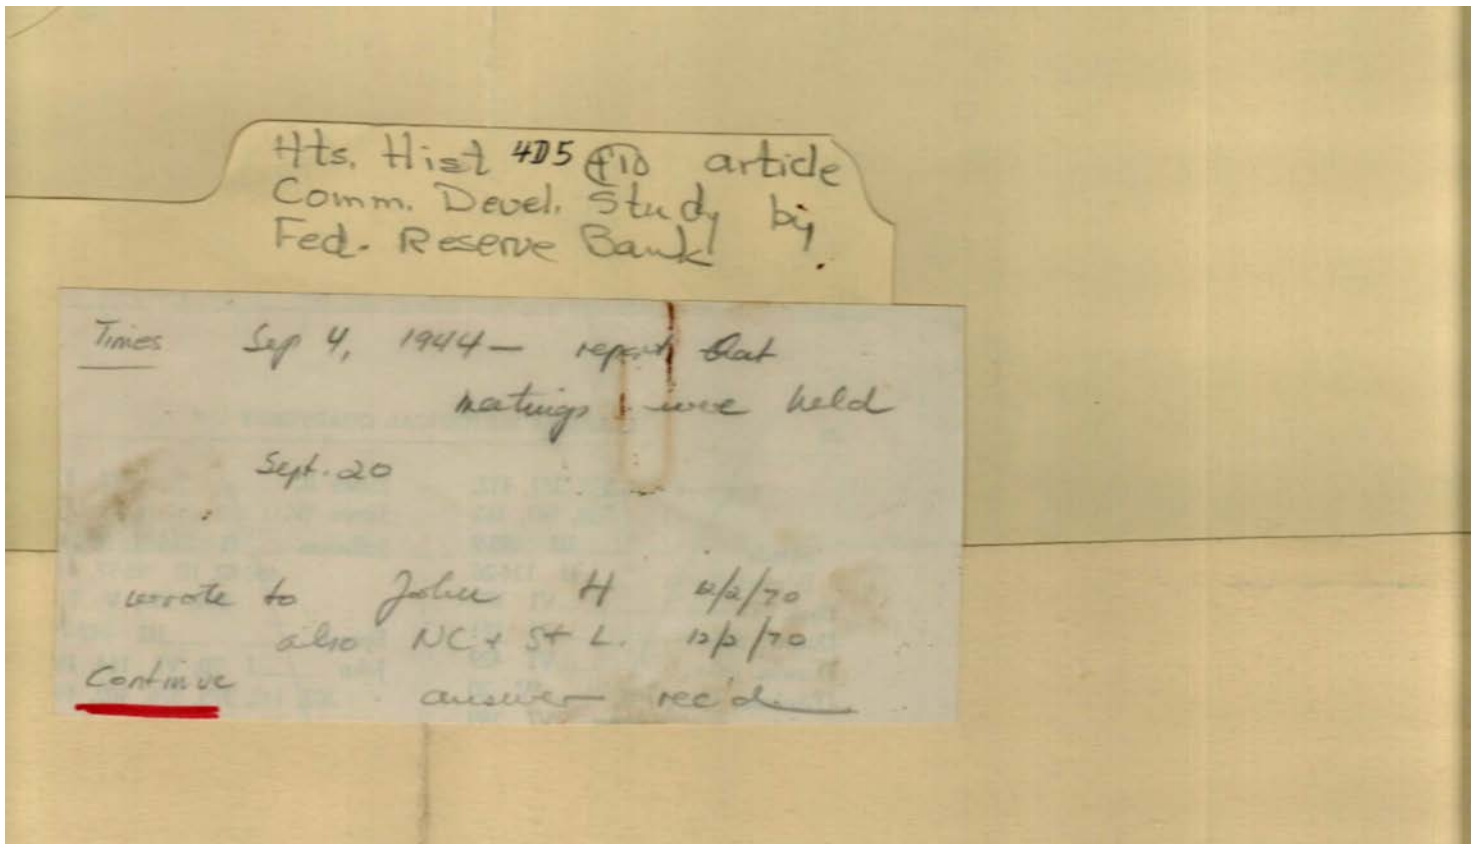 Hts. Hist 4D5 f10 article
Comm. Devel. Study by
Fed. Reserve Bank
Times Sep 4, 1944 — report that
meetings were held
Sept. 20
wrote to John H 12/2/70
also NC & St L. 12/2/70
Continue answer rec'd